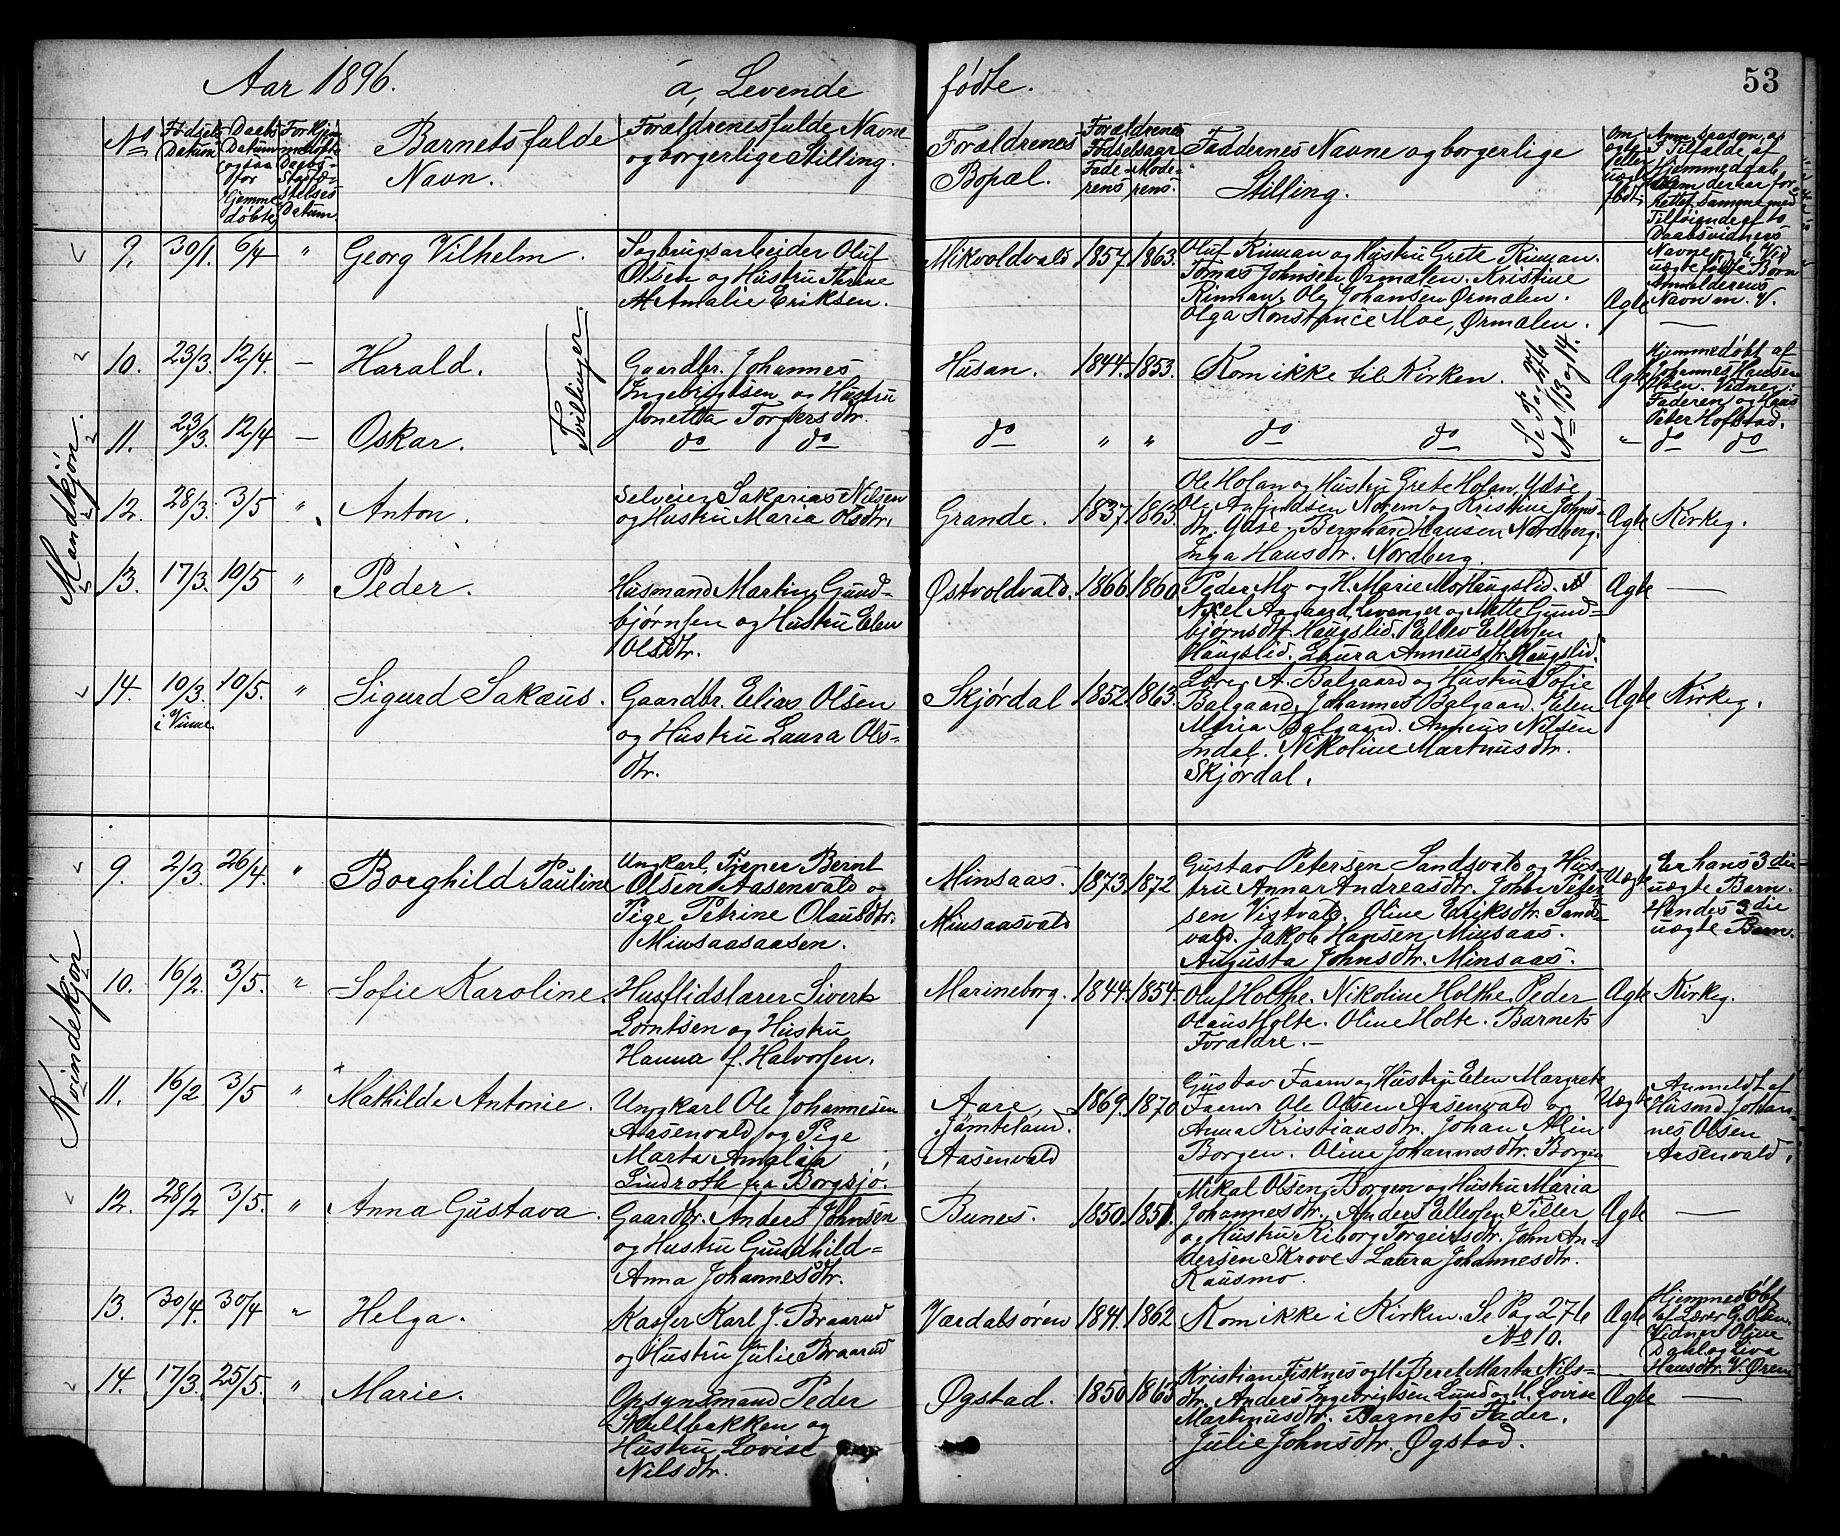 Aar 1896. a, Levende fødte. 53
No
Fødsels Datum
Daabs Datum ogsaa for hjemme døbte
Barnets fulde Navn.
Forældrenes fulde Navne og borgerlige Stilling.
Forældrenes Bopæl.
Forældrenes Fødselsaar Faderens Moderens
Faddernes Navne og borgerlige Stilling.
Om ægte eller uægte født
Mandkjøn.
9. 30/1. 6/4 " Georg Vilhelm.
Sagbrugsarbeider Oluf
Olsen og Hustru Thrine
Amalie Eriksen.
Mikvoldvald 1857. 1863.
Oluf Rinnan og Hustru Grete Rinnan.
Tomas Johnsen Ørmælen. Kristine
Rinnan, Ole Johansen Ørmelen.
Olga Konstance Moe, Ørmælen.
Ægte —
10. 23/3. 12/4. — Harald.
Tvillinger.
Gaardbr. Johannes
Ingebrigtsen og Hustru
Jonetta Torgersdtr.
Husan. 1844. 1853.
Kom ikke til Kirken.
Se Pag 276
No 13 og 14.
Ægte
Hjemmedøbt af
Johannes Hansen
Holen. Vidner:
Faderen og Hans
Peter Hofstad.
11. 23/3. 12/4 — Oskar.
do do
do " " do do " do do
12. 28/3. 3/5 " Anton.
Selveier Sakarias Nilsen
og Hustru Maria Olsdtr.
Grande. 1837. 1863.
Ole Holan og Hustru Grete Holan, Ydse
Kristine Johns-
dtr. Ydse. Bernhard Hansen Nordberg.
Inga Hansdtr. Nordberg.
Ægte Kirkeg.
13. 17/3. 10/5 " Peder.
Husmand Martin Gund-
bjørnsen og Hustru Elen
Olsdtr.
Østvoldvald. 1866. 1860.
Peder Mo og H. Marie Mo Haugslid.
Axel Aagaard, Levanger og Mette Gund-
bjørnsdtr. Haugslid. Ellev Ellevsen
Haugslid. Laura Anneusdtr. Haugslid.
Ægte —
14. 10/3. 10/5. " Sigurd Sakæus.
i Vinne
Gaardbr. Elias Olsen
og Hustru Laura Ols-
dtr.
Skjørdal 1852. 1863.
Lærer A. Balgaard og Hustru Sofie
Balgaard, Johannes Balgaard. Elen
Maria Balgaard. Anneus Nilsen
Indal. Nikoline Martinusdtr.
Skjørdal.
Ægte Kirkeg.
Kvindekjøn
9. 2/3. 26/4. " Borghild Pauline
Ungkarl, Tjener Bernt
Olsen Aasenvald og
Pige Petrine Olausdtr.
Minsaasaasen.
Minsaas. 1873. 1872.
Minsaasvald
Gustav Petersen Sandsvald og Hus-
tru Anna Andreasdtr. John Peter-
sen Vistvald. Oline Eriksdtr. Sands-
vald. Jakob Hansen Minsaas.
Augusta Johnsdtr. Minsaas.
Uægte
Er hans 3die
uægte Barn.
Hendes 3die
uægte Barn.
10. 16/2. 3/5. " Sofie Karoline.
Husflidslærer Sivert
Lorntsen og Hustru
Hanna f. Halvorsen.
Marineborg. 1844. 1854.
Oluf Holthe. Nikoline Holthe. Peder
Olaus Holte. Oline Holte. Barnets
Forældre.
Ægte Kirkeg.
11. 16/2 3/5 " Mathilde Antonie.
Ungkarl Ole Johannesen
Aasenvald og Pige
Marta Amalia
Lindroth fra Borgsjø.
Aare,
Jämteland.
Aasenvald
1869. 1870.
Gustav Faaen og Hustru Elen Margrete
Faaen. Ole Olsen Aasenvald og
Anna Kristiansdtr. Johan Alin
Borgen. Oline Johannesdtr. Borgen
Uægte
Anmeldt af
Husmd. Johan-
nes Olsen
Aasenvald.
12. 28/2 3/5. " Anna Gustava.
Gaardbr. Anders Johnsen
og Hustru Gundhild-
Anna Johannesdtr.
Bunes. 1850. 1851.
Mikal Olsen Borgen og Hustru Maria
Johannesdtr. Anders Ellevsen Tiller
og Hustru Riborg Torgeirsdtr. John An-
dersen Skrove. Laura Johannesdtr.
Kausmo.
Ægte —
13. 30/4. 30/4 " Helga.
Karl J. Braarud
og Hustru Julie Braarud
Værdalsøren 1841. 1862.
Kom ikke i Kirken. Se Pag 276
No 10.
Ægte
Hjemmedøbt
af Lærer G. Olsen.
Vidner Oline
Dahl og Liva
Hansdtr. V. Øren
14. 17/3. 25/5. " Marie.
Opsynsmand Peder
Skultbakken og
Hustru Lovise
Nilsdtr.
Øgstad. 1850 1865
Kristian Fisknes og H. Beret Marta Nils-
dtr. Anders Ingebrigtsen Lund og H. Lovise
Martinusdtr. Barnets Fader.
Julie Johnsdtr. Øgstad.
Ægte —